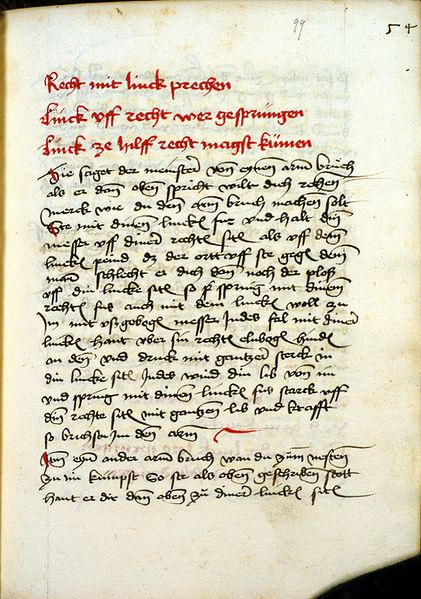 99
54
Recht mit linck prechen
Linck vff recht wer gesprungen
Linck ze hilff recht magst kumen
Hie saget der meinster von eynem arm bruch
als er dan oben spricht wiltu dich rechen
merck wie du den arm bruch machen solt
Ste mit dinem lincken fus vnd halt din
messer vff diner rechten siten als vff dem
lincken das der ort vff ste gegen dem
man schlecht er dich dan noch der plosz
vff die lincke siten so spring mit dinem
rechten fus auch mit dem lincken woll zu
Im mit messer Indes fal mit diner
lincken hant vber sin rechten elbogen hinden
an den vnd druck mit gantzer sterck in
die lincke siten Indes wind din lib von im
vnd spring mit dinem lincken fus starck vff
din rechte siten mit gantzem lib vnd krafft
so brichstu Im den arm
Item eyn ander arm bruch wan du zum nesten
zu im kumpst So ste als oben geschriben stott
haut er dir dan oben zu diner lincken siten